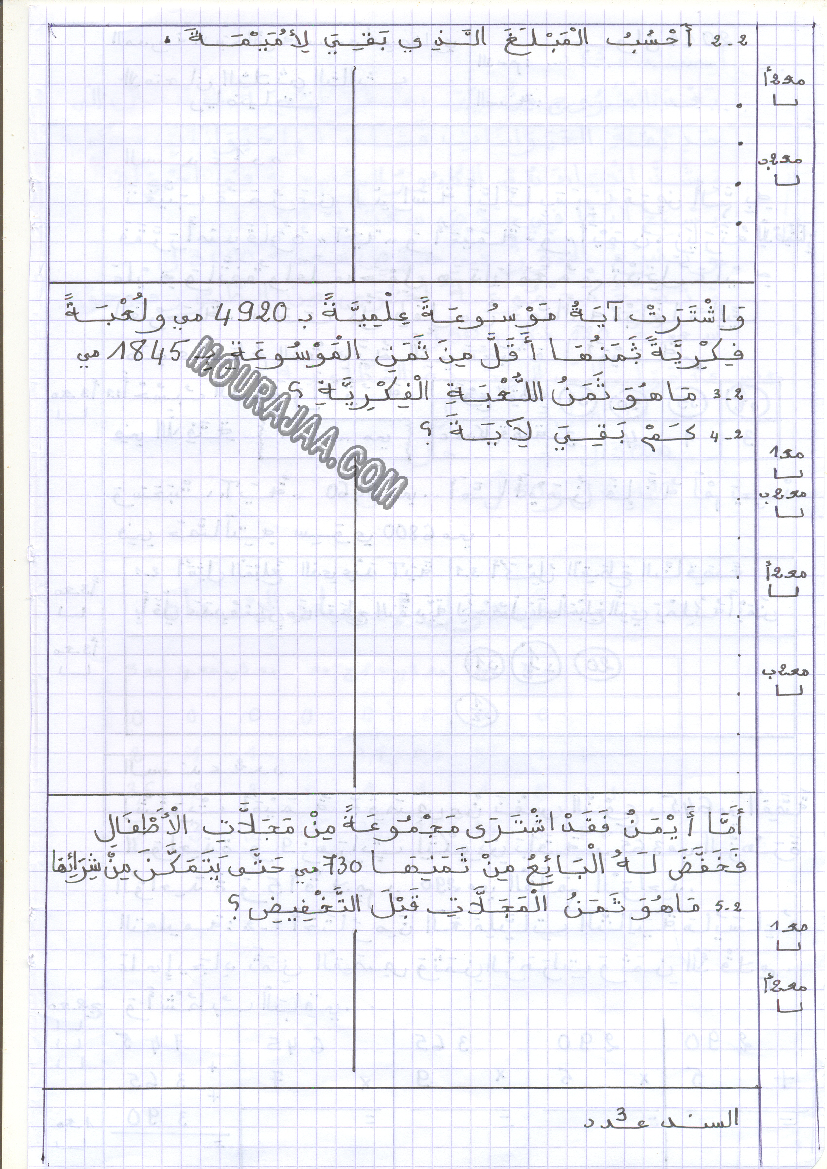 2-2 أَحْسُبُ الْمَبْلَغَ الَّذِي بَقِيَ لِأُمَيْمَةَ .
مع2أ
مع2ب
وَاشْتَرَتْ آيَةُ مَوْسُوعَةً عِلْمِيَّةً بـ 4920 مي ولُعْبَةً
فِكْرِيَّةً ثَمَنُهَا أَقَلَّ مِنَ ثَمَنِ الْمَوْسُوعَةِ بِـ 1845 مي
3-2 مَا هُوَ ثَمَنُ اللُّعْبَةِ الْفِكْرِيَّةِ ؟
4-2 كَمْ بَقِيَ لِآيَةَ ؟
مع1
مع2ب
مع2أ
مع2ب
MOURAJAA.COM
أَمَّا أَيْمَنُ فَقَدْ اشْتَرَى مَجْمُوعَةً مِنْ مَجَلَّاتِ الْأَطْفَالِ
فَخَفَّضَ لَهُ الْبَائِعُ مِنْ ثَمَنِهَا 730 مي حَتَّى يَتَمَكَّنَ مِنْ شِرَائِهَا
5-2 مَا هُوَ ثَمَنُ الْمَجَلَّاتِ قَبْلَ التَّخْفِيضِ ؟
مع1
مع2أ
السند عدد 3